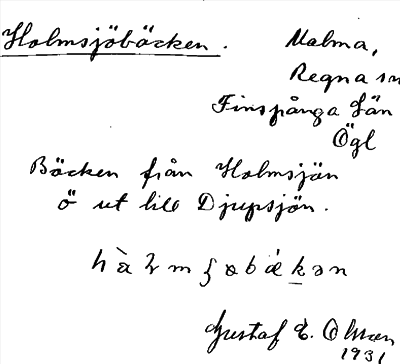 Holmsjöbäcken. Malma,
Regna sn
Finspånga län
Ögl
Bäcken från Holmsjön
ö ut till Djupsjön.
Gustaf E. Olsson
1931